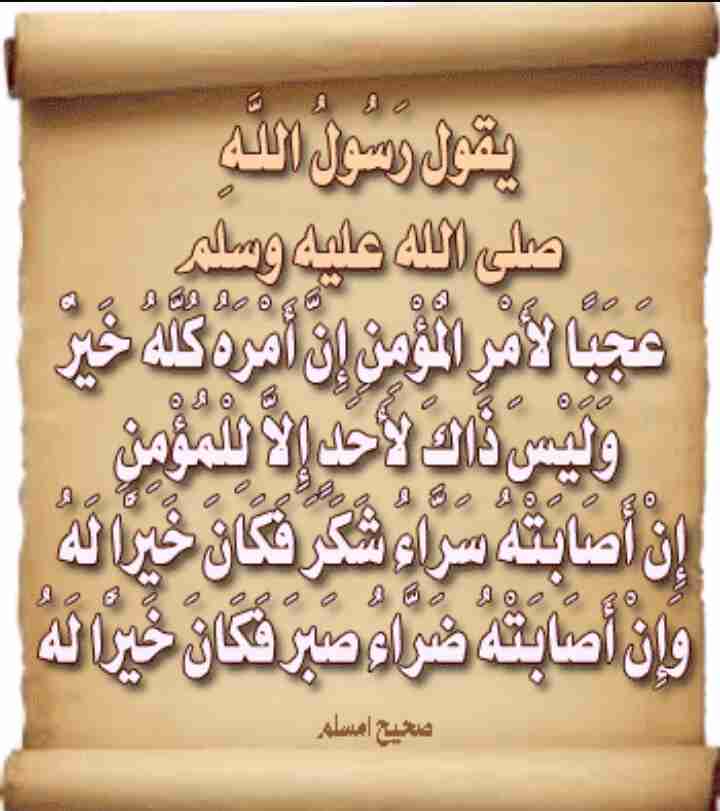 يقول رَسُولُ اللَّهِ
صلى الله عليه وسلم
عَجَبًا لأَمْرِ الْمُؤْمِنِ إِنَّ أَمْرَهُ كُلَّهُ خَيْرٌ
وَلَيْسَ ذَاكَ لأَحَدٍ إِلاَّ لِلْمُؤْمِنِ
إِنْ أَصَابَتْهُ سَرَّاءُ شَكَرَ فَكَانَ خَيْرًا لَهُ
وَإِنْ أَصَابَتْهُ ضَرَّاءُ صَبَرَ فَكَانَ خَيْرًا لَهُ
صحيح امسلم